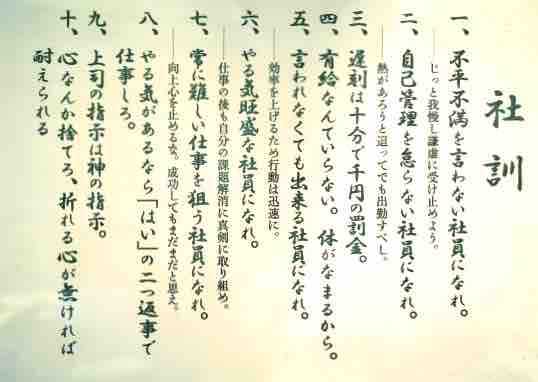 社訓
一、不平不満を言わない社員になれ。
――じっと我慢し謙虚に受け止めよう。
二、自己管理を怠らない社員になれ。
――熱があろうと這ってでも出勤すべし。
三、遅刻は十分で千円の罰金。
四、有給なんていらない。体がなまるから。
五、言われなくても出来る社員になれ。
――効率を上げるため行動は迅速に。
六、やる気旺盛な社員になれ。
――仕事の後も自分の課題解消に真剣に取り組め。
七、常に難しい仕事を狙う社員になれ。
――向上心を止めるな。成功してもまだまだと思え。
八、やる気があるなら「はい」の二つ返事で
仕事しろ。
九、上司の指示は神の指示。
十、心なんか捨てろ、折れる心が無ければ
耐えられる